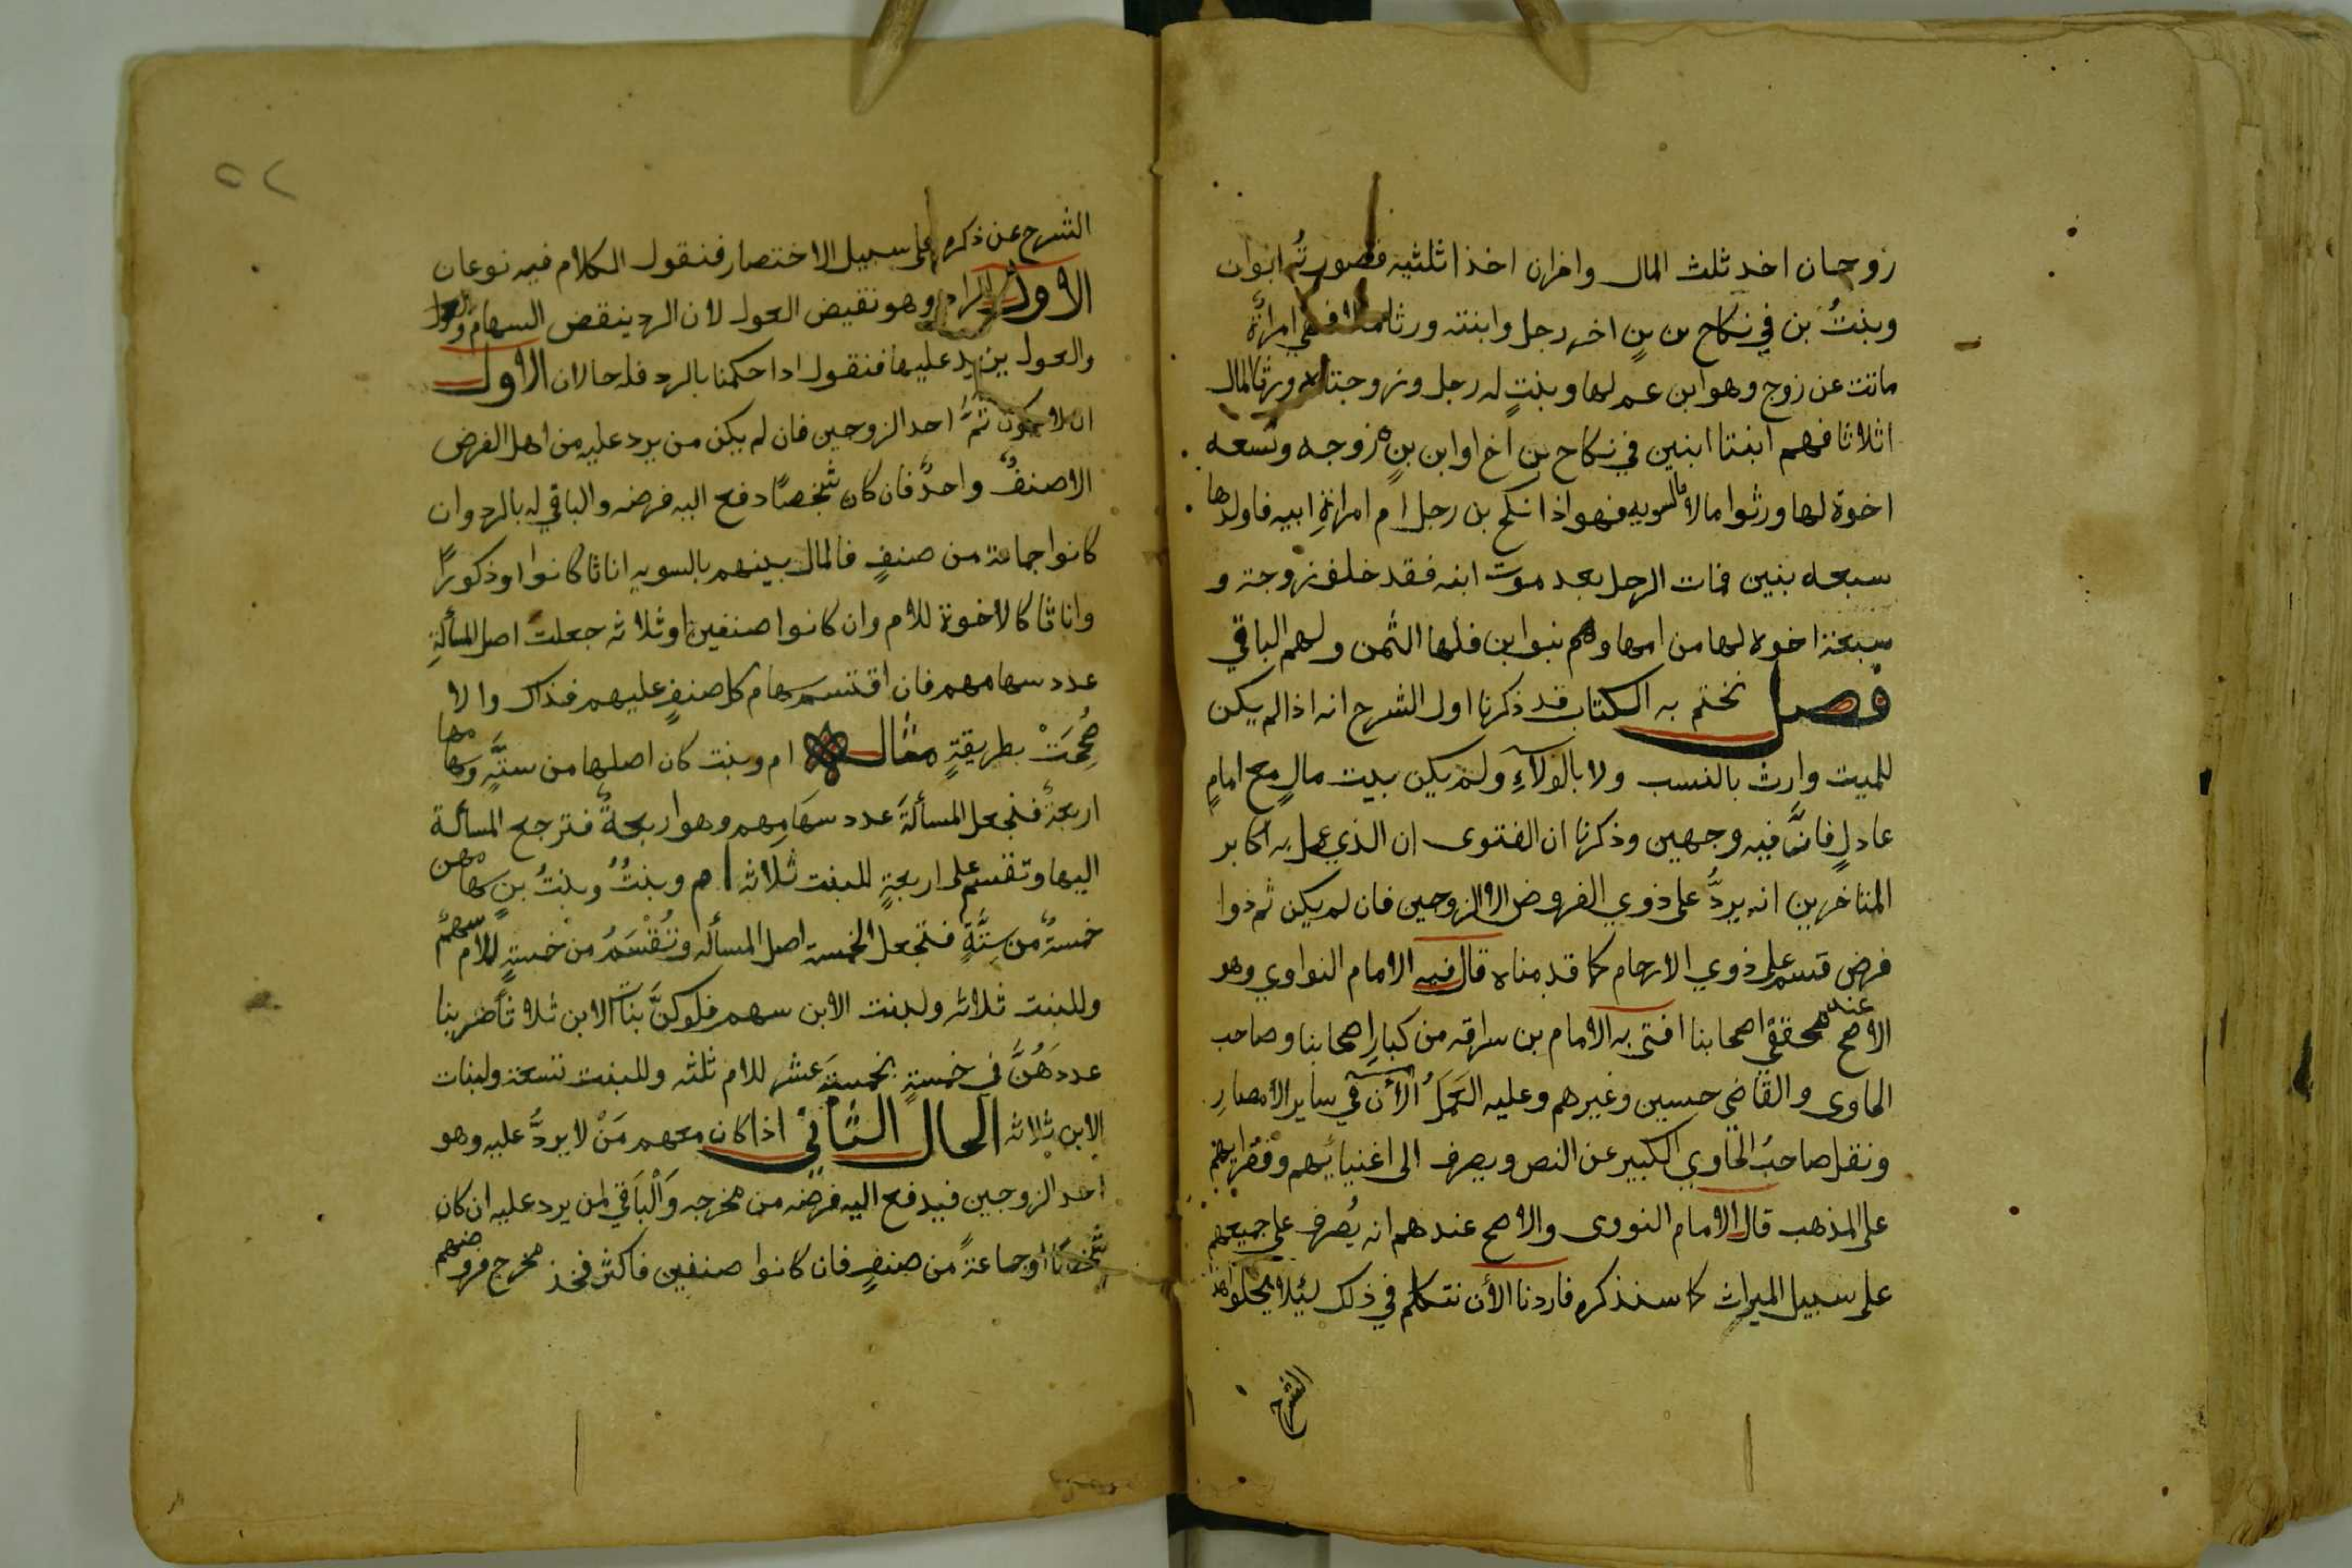 زوجان اخد ثلث المال واخران اخذا ثلثيه فصورته ابوان
وبنتُ بن في نكاح بن بنٍ اخر رجل وابنته ورثا مالا فهي امراةٌ
ماتت عن زوج وهو ابن عم لها وبنتٍ له رجل وزوجتاه ورثوا المال
اثلاثا فهم ابنتا ابنين في نكاح بن اخ او ابن بنٍ زوجه وتسعه
اخوة لها ورثوا مالا بالسويه فهو اذا نكح بن رجل ام امراةِ ابيه فاولدها
سبعه بنين فمات الرجل بعد موت ابنه فقد خلف زوجة و
سبعة اخوه لها من امها وهم بنوا بن فلها الثمن ولهم الباقي
فصل نختم به الكتاب قد ذكرنا اول الشرح انه اذا لم يكن
للميت وارث بالنسب ولا بالولآءِ ولم يكن بيت مالٍ مع امامٍ
عادلٍ فانَّ فيه وجهين وذكرنا ان الفتوى ان الذي عمل به اكابر
المتاخرين انه يردُّ على ذوي الفروض الا الزوجين فان لم يكن ثم ذوا
فرض قسم على ذوي الارحام كما قدمناه قال فيه الامام النواوي وهو
الاصح عند محققي اصحابنا افتى به الامام بن سراقه من كبارِ اصحابنا وصاحب
الحاوى والقاضي حسين وغيرهم وعليه العَمَلُ الأن في ساير الأمصارِ
ونقل صاحبُ الحاوي الكبير عن النص ويصرف الى اغنيائهم وفقرايهم
على المذهب قال الامام النووى والاصح عندهم انه يُصرف على جميعهم
على سبيل الميراث كما سنذكره فاردنا الأن نتكلم في ذلك ليلا يخلوا هذا
الشرح
٥٢
الشرح عن ذكره على سبيل الاختصار فنقول الكلام فيه نوعان
الاول الراد وهو نقيض العول لان الرد ينقض السهام
والعول يزيد عليها فنقول اذا حكمنا بالرد فله حالان الاول
ان لا يكون ثمَّ احد الزوجين فان لم يكن من يرد عليه من اهل الفرض
الا صنفٌ واحدٌ فان كان شخصًا دفع اليه فرضه والباقي له بالرد وان
كانوا جماعة من صنفٍ فالمال بينهم بالسويه اناثا كانوا او ذكورًا
واناثا كالاخوة للام وان كانوا صنفين او ثلاثه جعلت اصل المسألةِ
عدد سهامهم فان اقتسم سهام كل صنفٍ عليهم فذاك والا
صُححَتْ بطريقةٍ مثال ام وبنت كان اصلها من ستَّهٍ وسهامها
اربعةٌ فنجعل المسألةَ عدد سهامِهم وهو اربعةٌ فترجع المسألة
اليها وتقسم على اربعةٍ للبنت ثلاثه ام وبنتُ وبنتُ بنٍ سهامهن
خمسةٌ من ستَّةٍ فنجعل الخمسة اصل المسأله وتُقْسَمُ من خمسةٍ للام سهمٌ
وللبنت ثلاثه ولبنت الابن سهم فلو كنَّ بناتُ الابن ثلاثاً ضربنا
عددَهُنَّ في خمسةٍ بخمسةَ عشر للام ثلثه وللبنت تسعة ولبنات
الابن ثلاثه الحال الثاني اذا كان معهم مَنْ لا يردُّ عليه وهو
احد الزوجين فيدفع اليه فرضه من مخرجه وَالْبَاقي لمن يرد عليه ان كان
شخصًا او جماعةً من صنفٍ فان كانوا صنفين فاكثر فخذ مخرج فروضهم